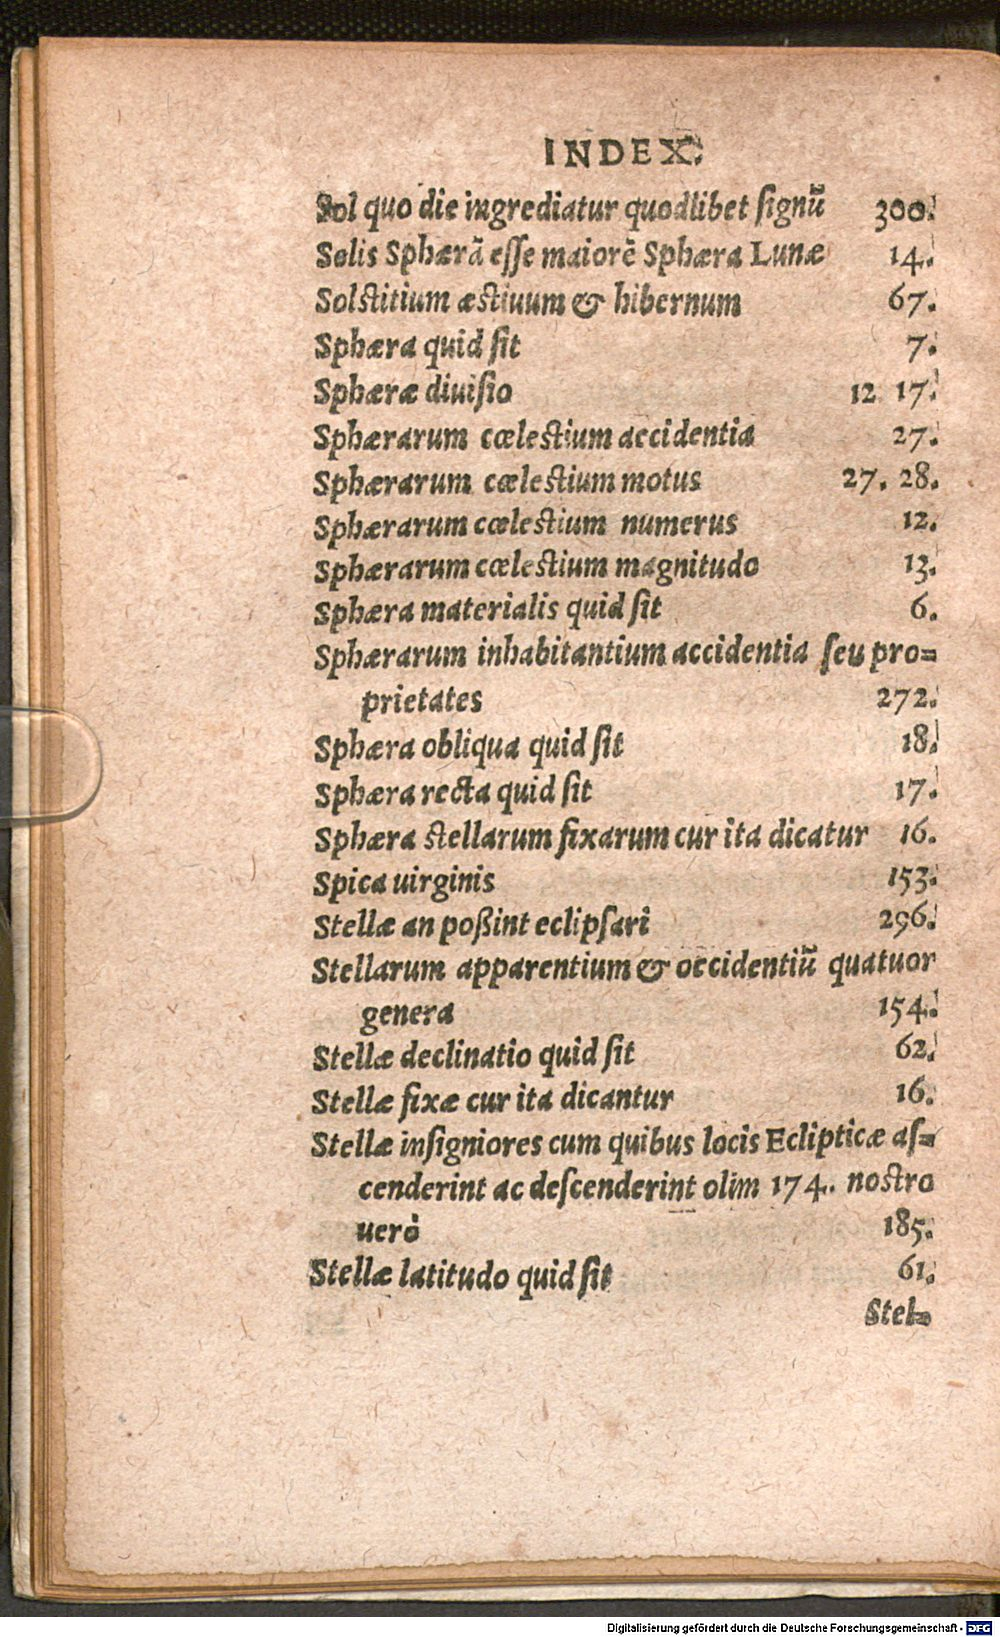 INDEX.
Sol quo die ingrediatur quodlibet ſignū 300.
Solis Sphærā eſſe maiorē Sphæra Lunæ 14.
Solstitium æstiuum & hibernum 67.
Sphæra quid ſit 7.
Sphæræ diuiſio 12 17.
Sphærarum cœlestium accidentia 27.
Sphærarum cœlestium motus 27. 28.
Sphærarum cœlestium numerus 12.
Sphærarum cœlestium magnitudo 13.
Sphæra materialis quid ſit 6.
Sphærarum inhabitantium accidentia ſeu pro=
prietates 272.
Sphæra obliqua quid ſit 18.
Sphæra recta quid ſit 17.
Sphæra stellarum fixarum cur ita dicatur 16.
Spica uirginis 153.
Stellæ an poßint eclipſari 296.
Stellarum apparentium & occidentiū quatuor
genera 154.
Stellæ declinatio quid ſit 62.
Stellæ fixæ cur ita dicantur 16.
Stellæ inſigniores cum quibus locis Eclipticæ aſ=
cenderint ac deſcenderint olim 174. nostro
uerò 185.
Stellæ latitudo quid ſit 61.
Stel=
Digitalisierung gefördert durch die Deutsche Forschungsgemeinschaft - DFG